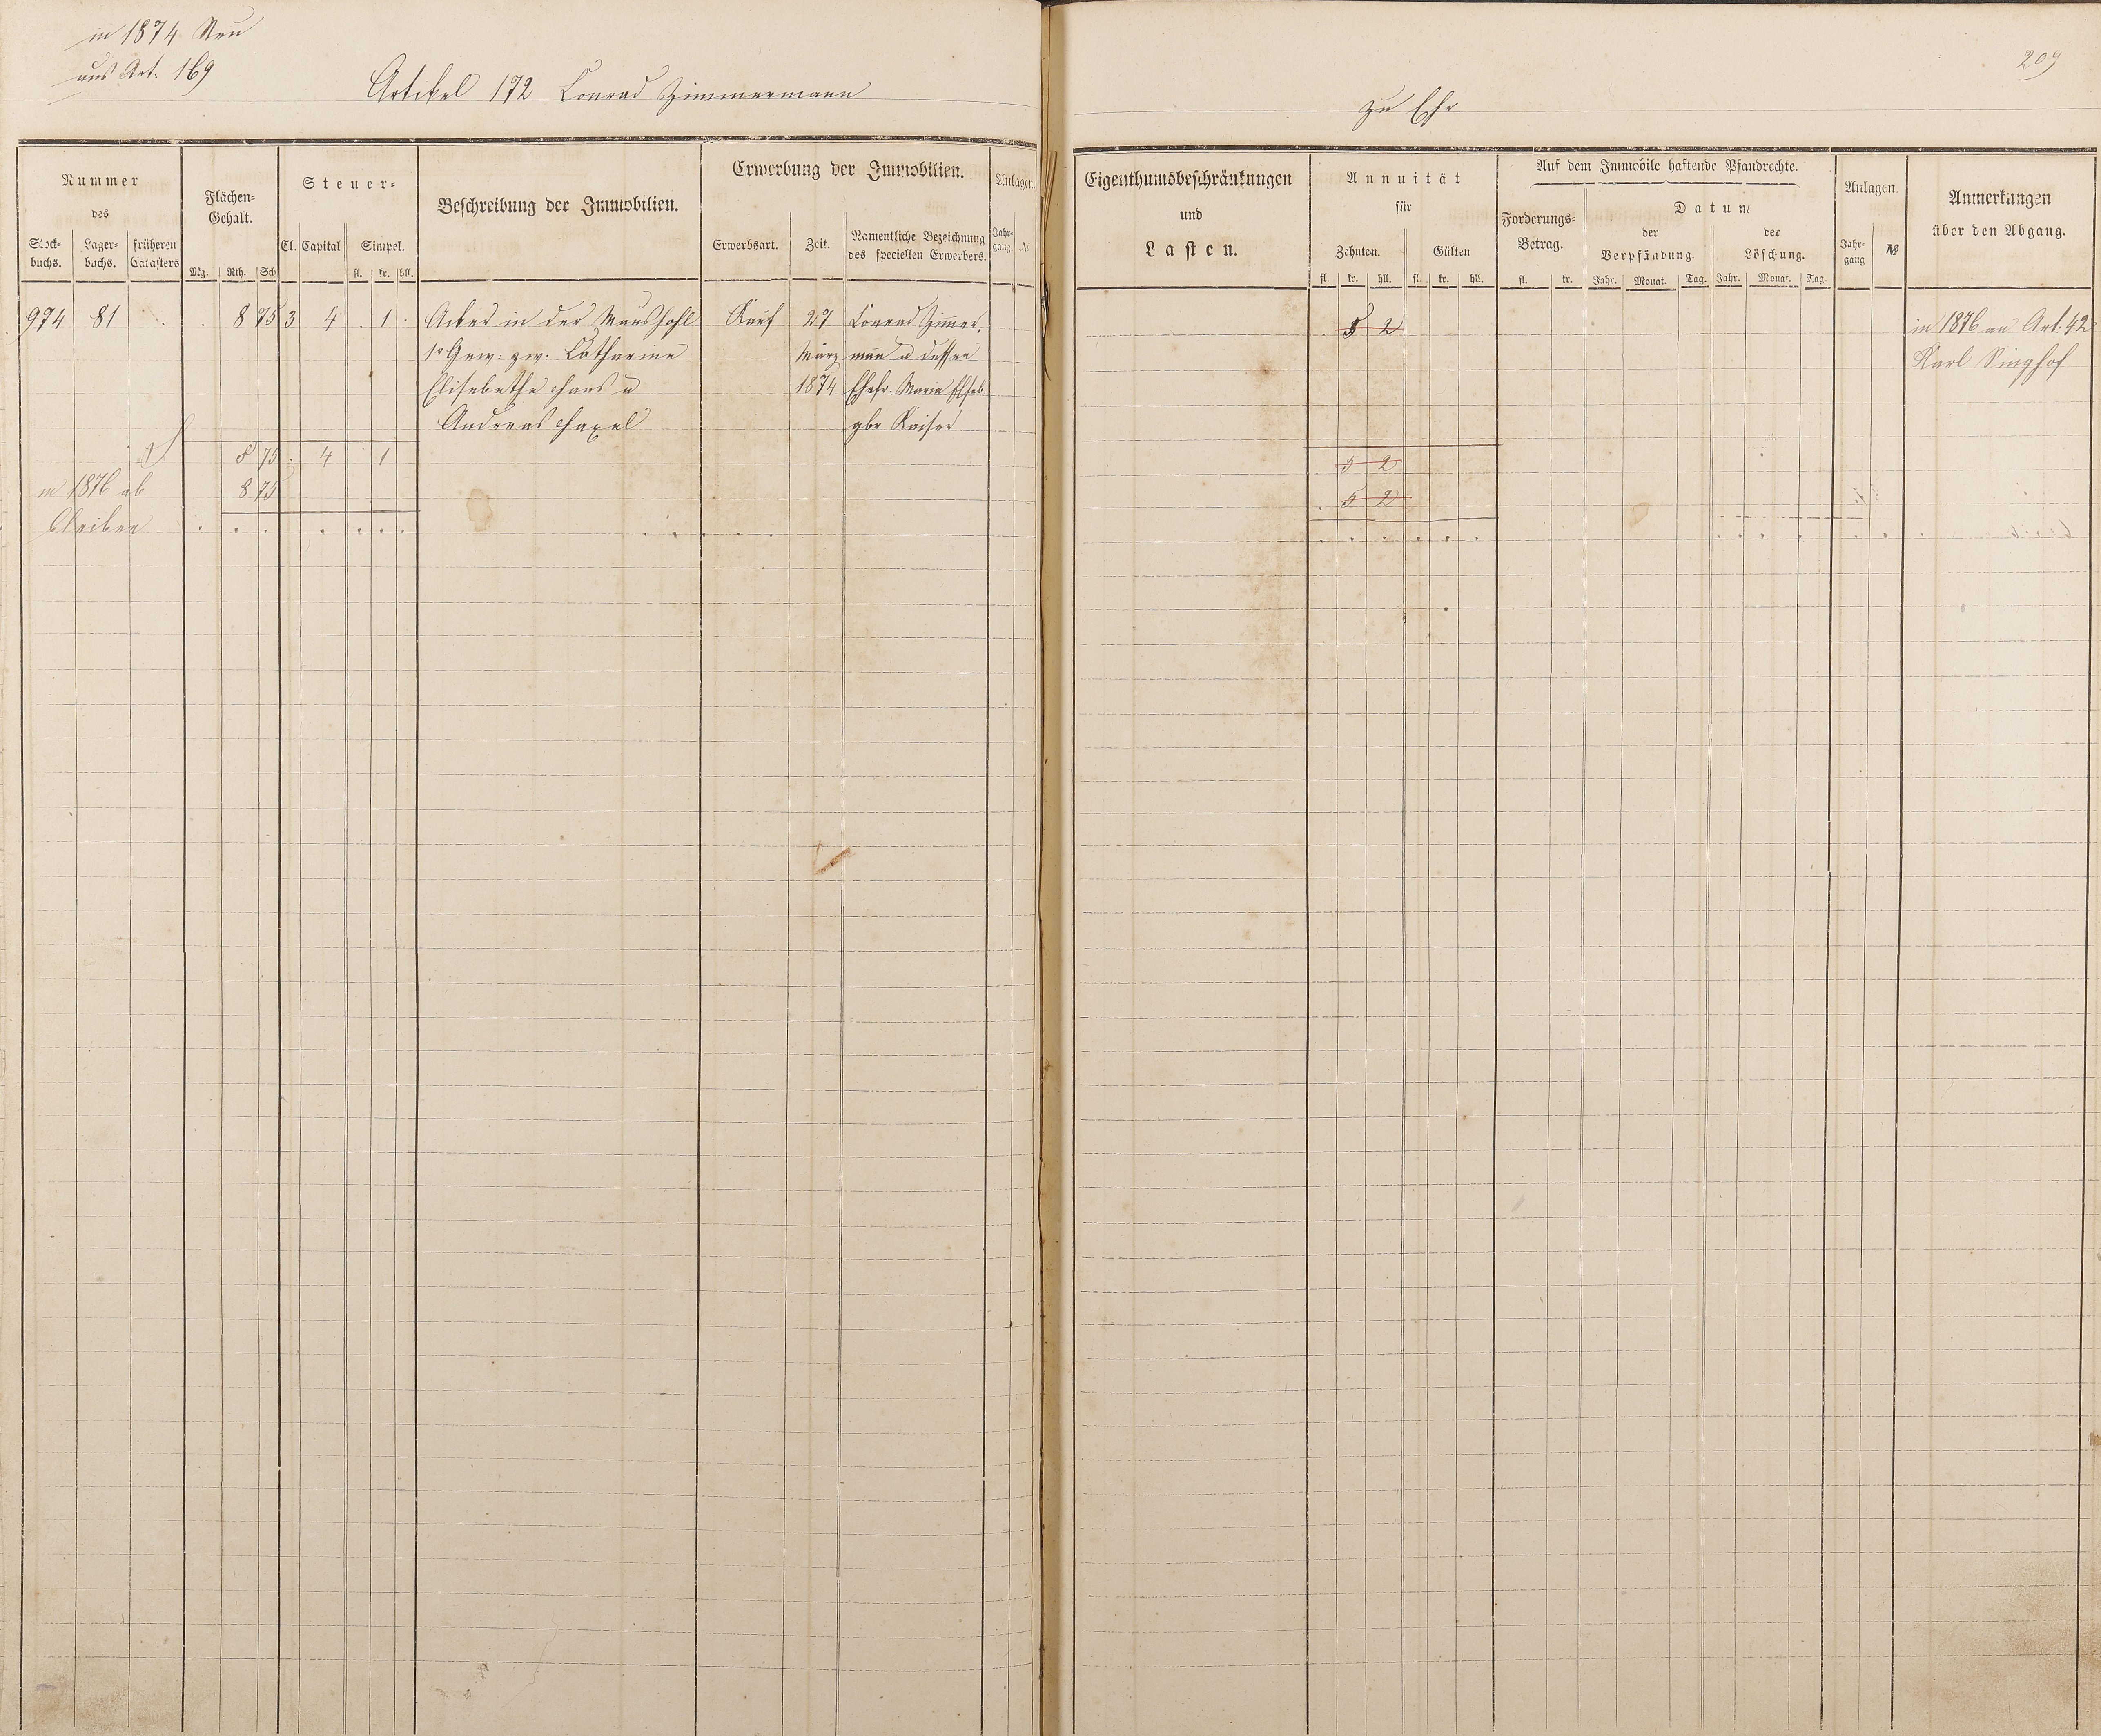 in 1874 Neu
aus Art. 169
Artikel 172 Conrad Zimmermann
zu Ehr
209
Nummer
des
Stock-
buchs.
Lager-
buchs.
früheren
Catasters
Flächen-
Gehalt.
Mg. Rth. Sch
Steuer-
Cl. Capital Simpel.
fl. kr. hll.
Beschreibung der Immobilien.
Erwerbung der Immobilien.
Erwerbsart. Zeit.
Namentliche Bezeichnung
des speciellen Erwerbers.
Anlagen.
Jahr-
gang. №
Eigenthumsbeschränkungen
und
Lasten.
Annuität
für
Zehnten. Gülten
fl. kr. hll. fl. kr. hll.
Auf dem Immobile haftende Pfandrechte.
Forderungs-
Betrag.
fl. kr.
Datum
der
Verpfändung.
Jahr. Monat. Tag.
der
Löschung.
Jahr. Monat. Tag.
Anlagen.
Jahr-
gang №
Anmerkungen
über den Abgang.
974 81 8 75 3 4 1 Acker in der Maushohl Kauf 27 Conrad Zimmer- 5 2 in 1876 an Art. 42
1r Gew. zw. Catharine März mann u dessen Karl Singhof
Elisabethe Haus u 1874 Ehefr Maria Elisab.
Andreas Haxel gbr Kaiser
8 75 4 1 5 2
in 1876 ab 8 75 5 2
Bleiben